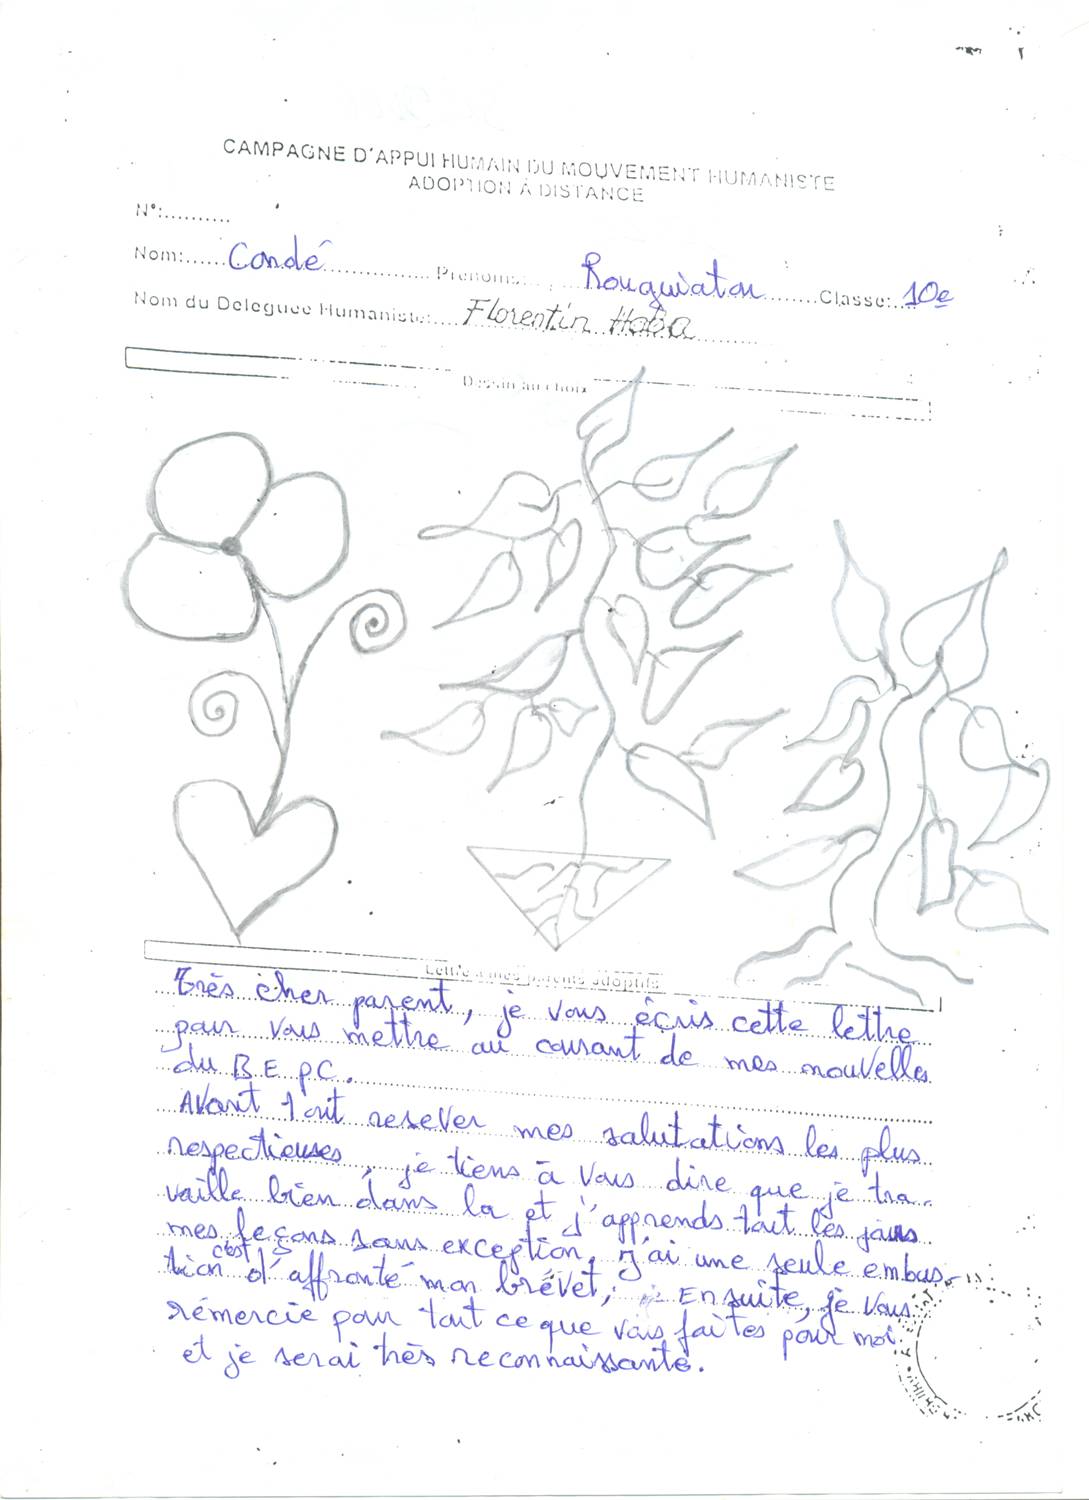 CAMPAGNE D'APPUI HUMAIN DU MOUVEMENT HUMANISTE
ADOPTION A DISTANCE
N°:..........
Nom:...... Condé ............... Prénoms:..... Rouguiatou ........Classe:... 10e
Nom du Deleguee Humaniste:.... Florentin Haba ..........
Dessin au choix
Lettre a mes parents adoptifs
Très cher parent, je vous écris cette lettre
pour vous mettre au courant de mes nouvelles
du B.E.P.C.
Avant tout resever mes salutations les plus
respectieuses, je tiens à vous dire que je tra-
vaille bien dans la et j'apprends tout les jours
mes leçons sans exception, j'ai une seule embus-
tion c'est d'affronté mon brévet, Ensuite, je vous
rémercie pour tout ce que vous faites pour moi.
et je serai très reconnaissante.